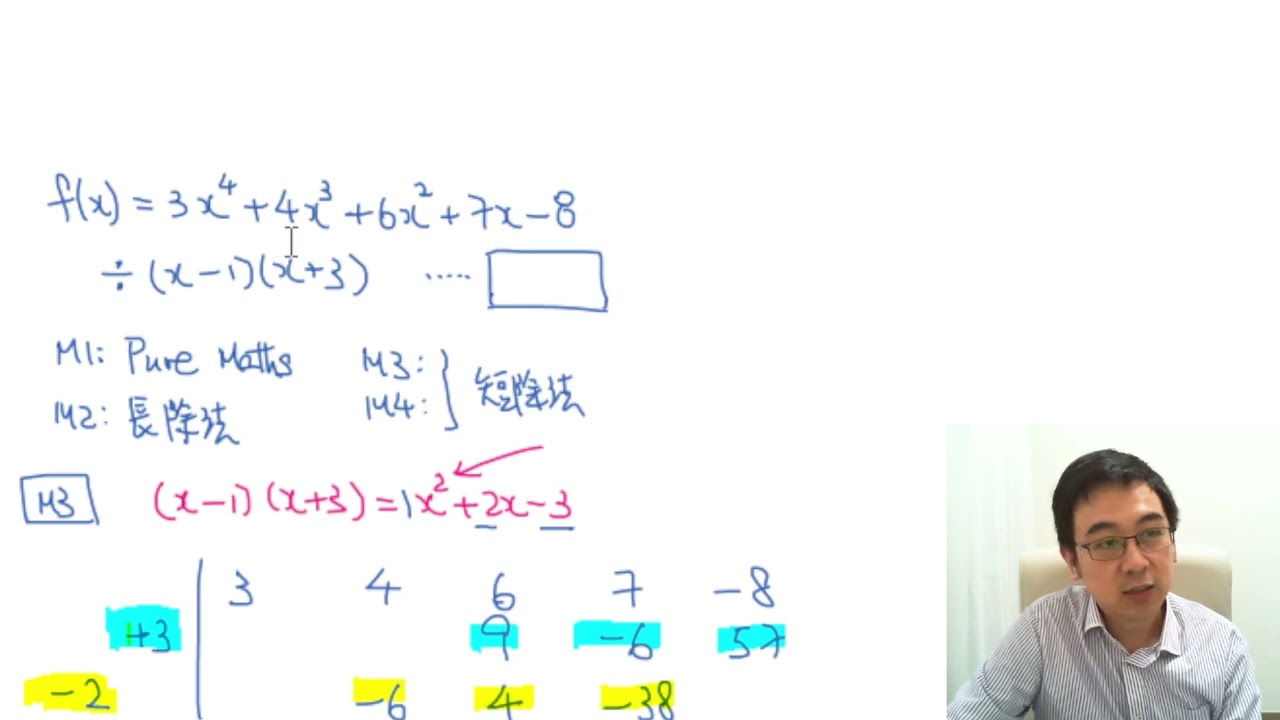 f(x) = 3x⁴ + 4x³ + 6x² + 7x - 8
÷ (x - 1)(x + 3) .....
M1: Pure Maths M3:
M2: 長除法 M4: 短除法
M3 (x - 1)(x + 3) = 1x² + 2x - 3
3 4 6 7 -8
+3 9 -6 57
-2 -6 4 -38